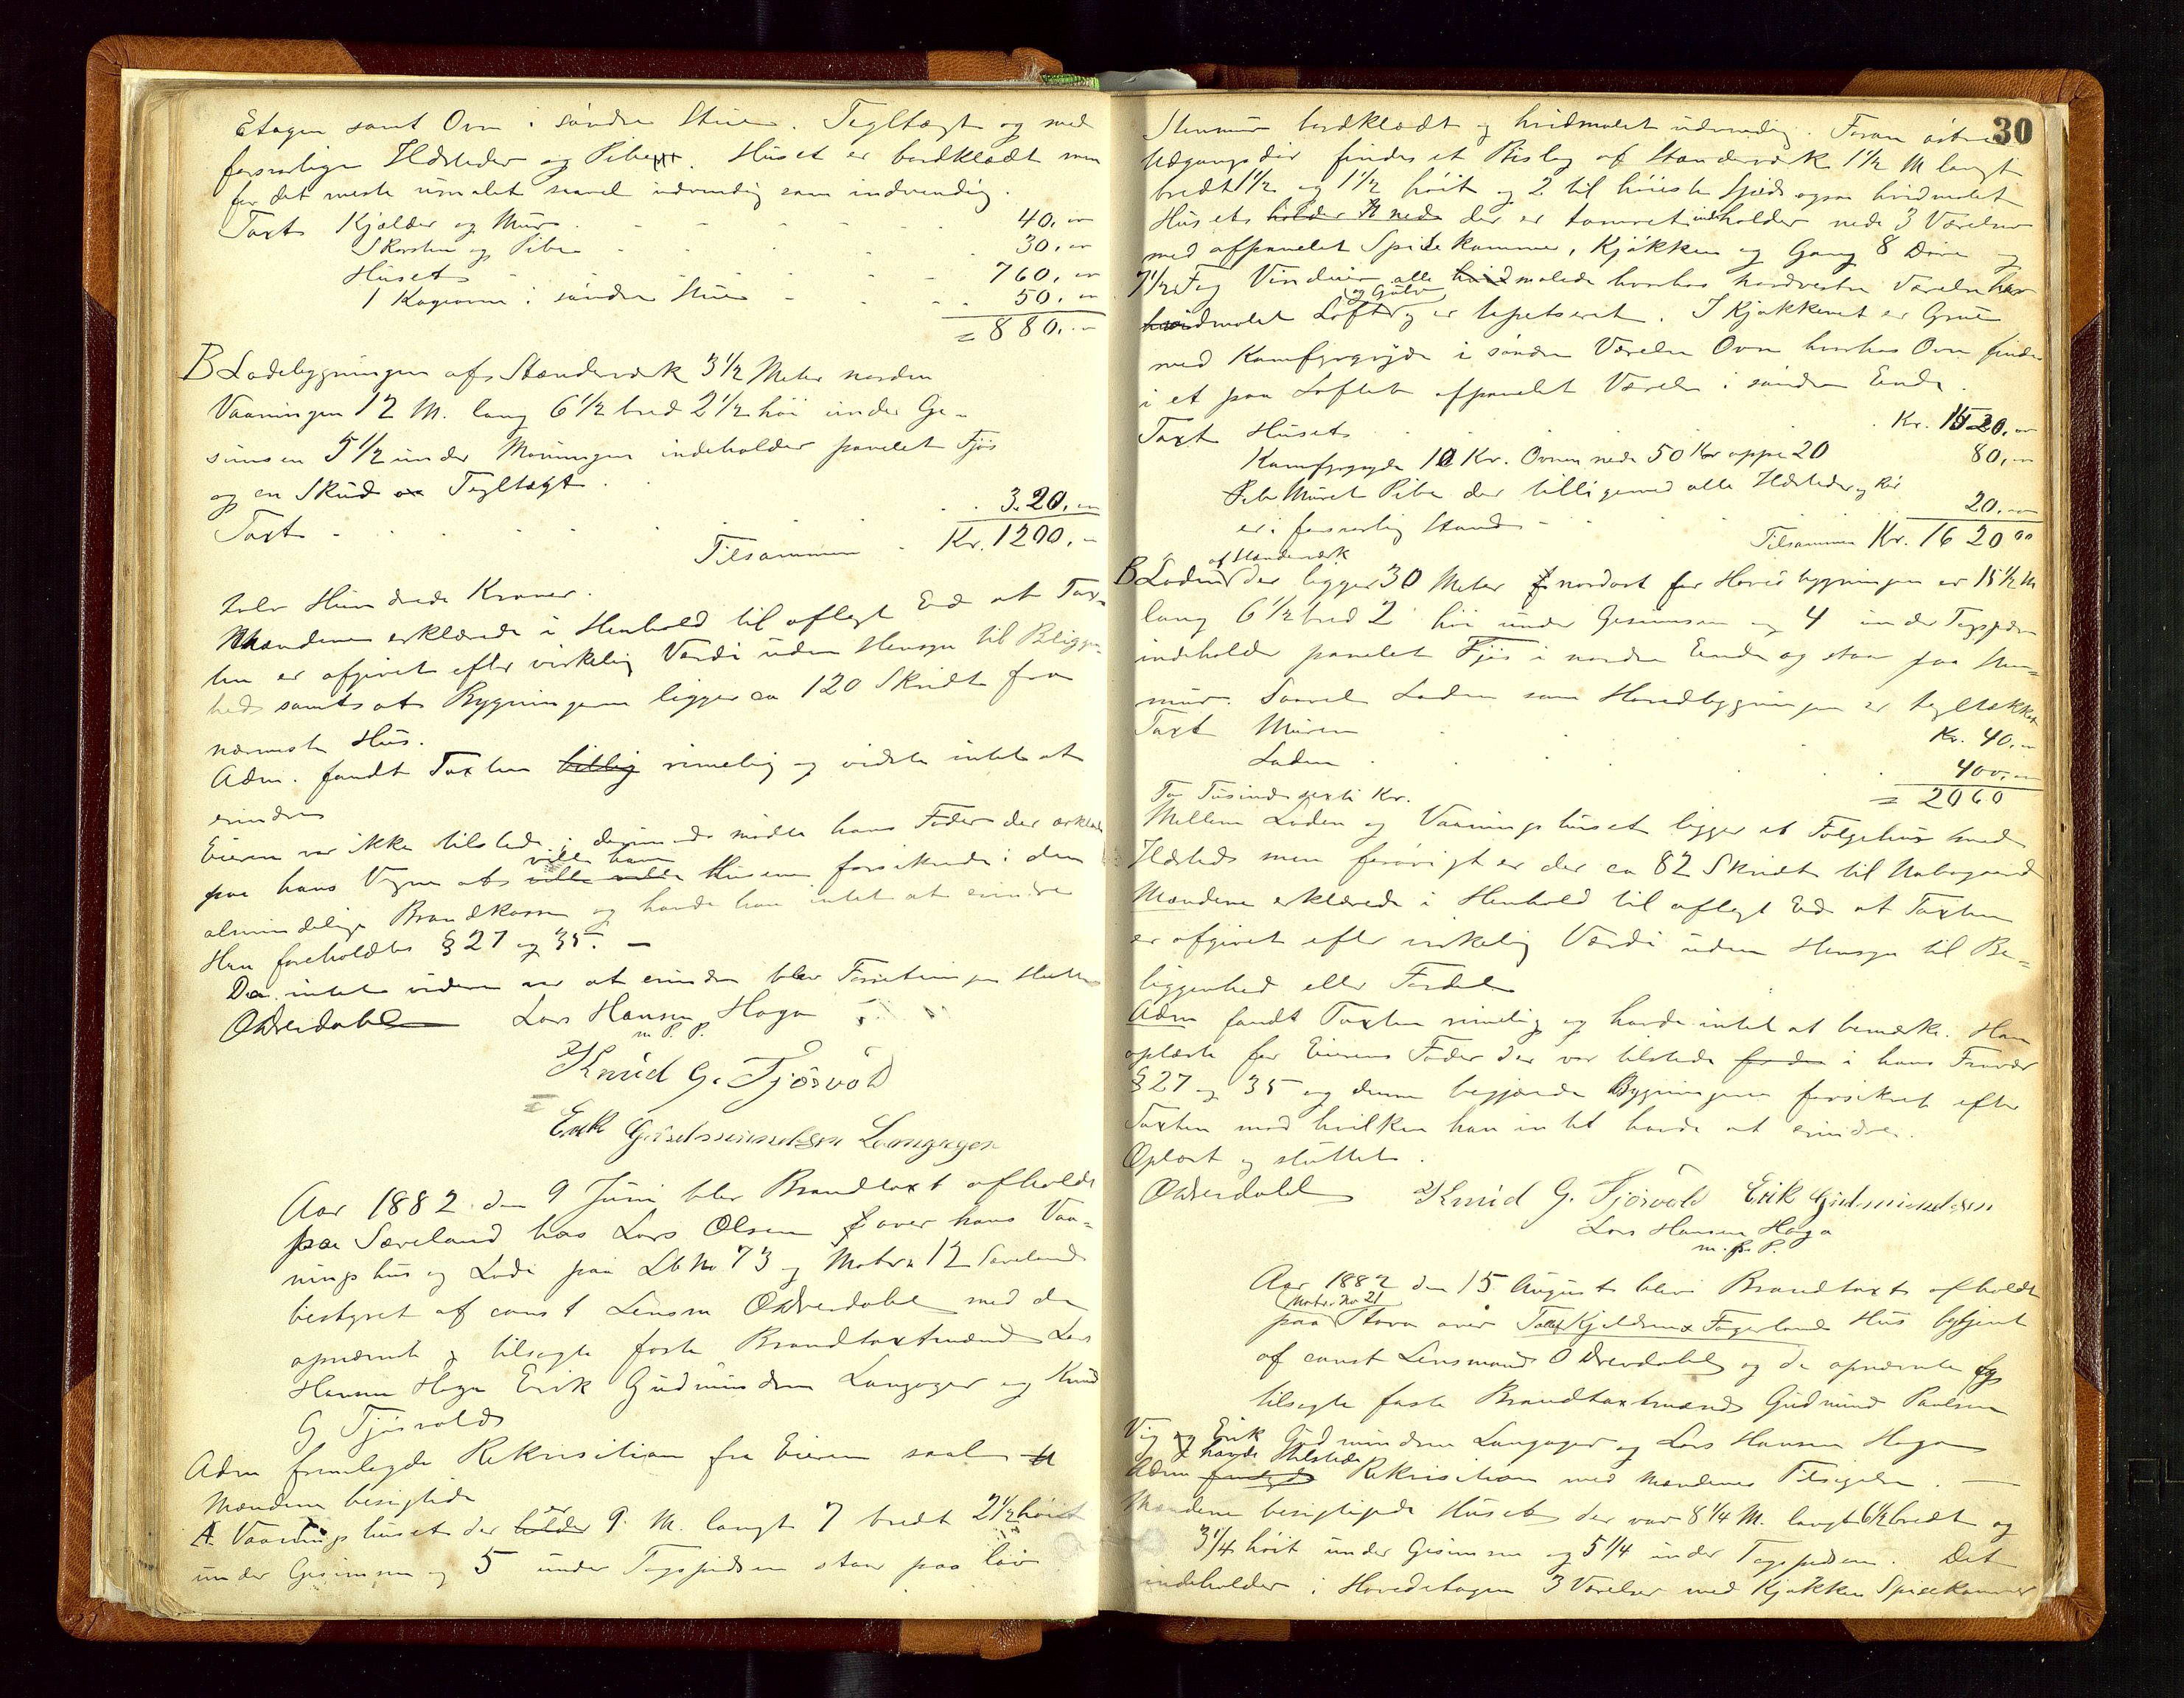 Etagen samt Ovn i söndre Stue. Tegltægt og med
forsvarlige Ildsteder og Pibe. Huset er bordklædt men
for det meste umalet saavel udvendig som indvendig.
Taxt Kjælder og Mur 40,00
Skorsten og Pibe 30,00
Huset 760,00
1 Kogeovn i söndre Stue 50,00
= 880,00
B Ladebygningen af Stænderværk 3 1/2 Meter norden
Vaaningen 12 M. lang 6 1/2 bred 2 1/2 höi under Ge-
simsen 5 1/2 under Möningen indeholder panelet Fjös
og en Skud Tegltægt.
Taxt 320,00
Tilsammen Kr. 1200,-
tolv Hundrede Kroner.
Mændene erklærede i Henhold til aflagt Ed at Tax-
ten er afgivet efter virkelig Værdi uden Hensyn til Beliggen-
hed samt at Bygningerne ligger ca 120 Skridt fra
nærmeste Hus.
Adm. fandt Taxten billig rimelig og vidste intet at
erindre
Eieren var ikke tilstede; derimod mödte hans Fader der erklærede
paa hans Vegne at ville have Husene forsikrede i den
almindelige Brandkasse og havde han intet at erindre
Han foreholdtes § 27 og 35. —
Da intet videre var at erindre blev Forretningen sluttet
Odverdahl Lars Hansen Haga
m. P. P.
Knud G. Tjösvold
Erik Gudmundsen Langager
Aar 1882 den 9 Juni blev Brandtaxt afholdt
paa Sæveland hos Lars Olsen over hans Vaa-
ningshus og Lade paa Lb No 73 og Matr. n 12 Sæveland
bestyret af const Lensm Odverdahl med de
opnævnte og tilsagte faste Brandtaxtmænd Lars
Hansen Haga Erik Gudmundsen Langager og Knud
G Tjösvold
Adm fremlagde Rekvisition fra Eieren
Mændene besigtede
A. Vaaningshuset der holder er 9 M. langt 7 bredt 2 1/2 höit
under Gesimsen og 5 under Tagspidsen staar paa lav
30
Stenmur bordklædt og hvidmalet udvendig. Foran östre
Udgangsdör findes et Bislag af Stænderværk 1 1/2 M langt
bredt 1 1/2 og 1 1/2 höit og 2 til höieste Spids ogsaa hvidmalet
Huset holder nede der er tömret indholder nede 3 Værelser
med afpanelet Spisekammer, Kjökken og Gang 8 Döre og
7 1/2 Fag Vinduer alle hvidmalede hvorhos nordvestre Værelse har
hvidmalet Loft og Gulv og er tapetseret. I Kjøkkenet er Grue
med Komfyrgryde i söndre Værelse Ovn hvorhos Ovn findes
i et paa Loftet afpanelet Værelse i söndre Ende.
Taxt Huset Kr. 1520,00
Komfyrgryde 10 Kr. Ovnen nede 50 Kr oppe 20 80,00
Muret Pibe der tilligemed alle Ildsteder og Rör
er i forsvarlig Stand 20,00
Tilsammen Kr. 1620 00
B Laden af Stænderværk der ligger 30 Meter nordost for Hovedbygningen er 15 1/2 M
lang 6 1/2 bred 2 höi under Gesimsen og 4 under Tagspidsen
indeholder panelet Fjös i nordre Ende og staar paa Sten-
mur. Saavel Laden som Hovedbygningen er tegltækket
Taxt Muren Kr. 40,00
Laden 400,00
To Tusinde sexti Kr. = 2060
Mellem Laden og Vaaningshuset ligger et Fölgehus med
Ildsted men forövrigt er der ca 82 Skridt til Nabogaard
Mændene erklærede i Henhold til aflagt Ed at Taxten
er afgivet efter virkelig Værdi uden Hensyn til Be-
liggenhed eller Fordel
Adm fandt Taxten rimelig og havde intet at bemærke. Han
oplæste for Eierens Fader der var tilstede i hans Fravær
§ 27 og 35 og denne begjærede Bygningerne forsikret efter
Taxten mod hvilken han intet havde at erindre.
Oplæst og sluttet.
Odverdahl Knud G. Tjösvold Erik Gudmundsen
Lars Hansen Haga
m. p. P.
Aar 1882 den 15 August blev Brandtaxt afholdt
paa Matr. No 21 Stava over Tollef Kjeldsen Fagerlands Hus betjent
af const Lensmand Odverdahl og de opnævnte og
tilsagte faste Brandtaxtmænd Gudmund Paulsen
Vig og Erik Gudmundsen Langager og Lars Hansen Haga
Adm havde tilstede Rekvisition med Mændenes Tilsigelse.
Mændene besigtigede Huset der var 8 1/4 M. langt 6 1/2 bredt og
3 1/4 höit under Gesimsen og 5 1/4 under Tagspidsen. Det
indeholder i Hovedetagen 3 Værelser med Kjökken Spisekammer